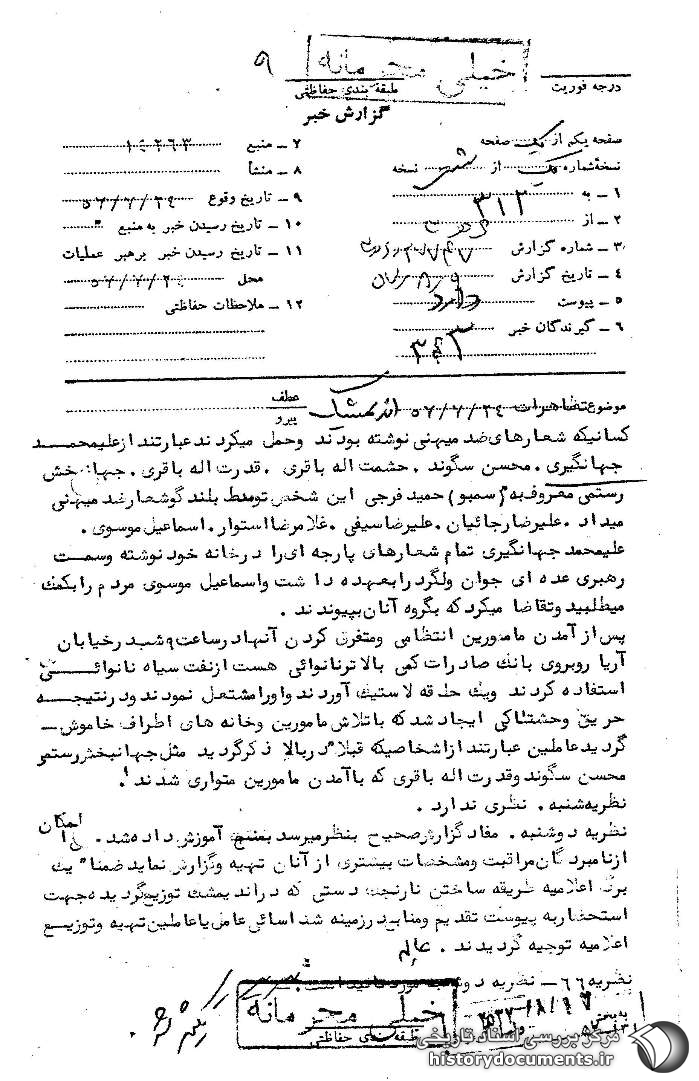 خیلی محرمانه
۹
درجه فوریت
طبقه بندی حفاظتی
گزارش خبر
صفحه یکم از یک صفحه
نسخه شماره یک از شش نسخه
۱ ـ به ۳۱۲
۲ ـ از
۳ ـ شماره گزارش
۴ ـ تاریخ گزارش
۵ ـ پیوست دارد
۶ ـ گیرندگان خبر
۷ ـ منبع ۱۴۲۶۳
۸ ـ منشأ
۹ ـ تاریخ وقوع ۵۷/۷/۲۴
۱۰ ـ تاریخ رسیدن خبر به منبع
۱۱ ـ تاریخ رسیدن خبر برهبر عملیات
محل ۵۷/۷/۲۴
۱۲ ـ ملاحظات حفاظتی
موضوع تظاهرات ۵۷/۷/۲۴ اندیمشک
عطف
پیرو
کسانیکه شعارهای ضد میهنی نوشته بودند وحمل میکردند عبارتند از علیمحمد
جهانگیری . محسن سگوند . حشمت اله باقری . قدرت اله باقری . جهانبخش
رستمی معروف به (سمبو) حمید فرجی این شخص توسط بلندگو شعار ضد میهنی
میداد . علیرضا رجائیان . علیرضا سیفی . غلامرضا استوار . اسماعیل موسوی .
علیمحمد جهانگیری تمام شعارهای پارچه ای را درخانه خود نوشته وسمت
رهبری عده ای جوان ولگرد را بعهده داشت واسماعیل موسوی مردم را بکمک
میطلبید وتقاضا میکرد که بگروه آنان بپیوندند .
پس از آمدن مامورین انتظامی ومتفرق کردن آنها در ساعت ۹ شب در خیابان
آریا روبروی بانک صادرات کمی بالاتر نانوائی هست از نفت سیاه نانوائی
استفاده کردند ویک حلقه لاستیک آوردند واورا مشتعل نمودند ودرنتیجه
حریق وحشتناکی ایجاد شد که باتلاش مامورین وخانه های اطراف خاموش ـ
گردید عاملین عبارتند از اشخاصیکه قبلا" در بالا ذکر گردید مثل جهانبخش رستمی
محسن سگوند وقدرت اله باقری که باآمدن مامورین متواری شدند .
نظریه شنبه . نظری ندارد .
نظریه دوشنبه . مفاد گزارش صحیح بنظر میرسد بمنبع آموزش داده شد . امکان
از نامبردگان مراقبت ومشخصات بیشتری از آنان تهیه وگزارش نماید ضمنا" یک
برگ اعلامیه طریقه ساختن نارنجک دستی که در اندیمشک توزیع گردیده جهت
استحضار به پیوست تقدیم ومنابع در زمینه شناسائی عامل یا عاملین تهیه وتوزیع
اعلامیه توجیه گردیدند . عالم
نظریه ۶۶ ـ نظریه دوشنبه مورد تائید است
خیلی محرمانه
طبقه بندی حفاظتی
مرکز بررسی اسناد تاریخی
historydocuments.ir